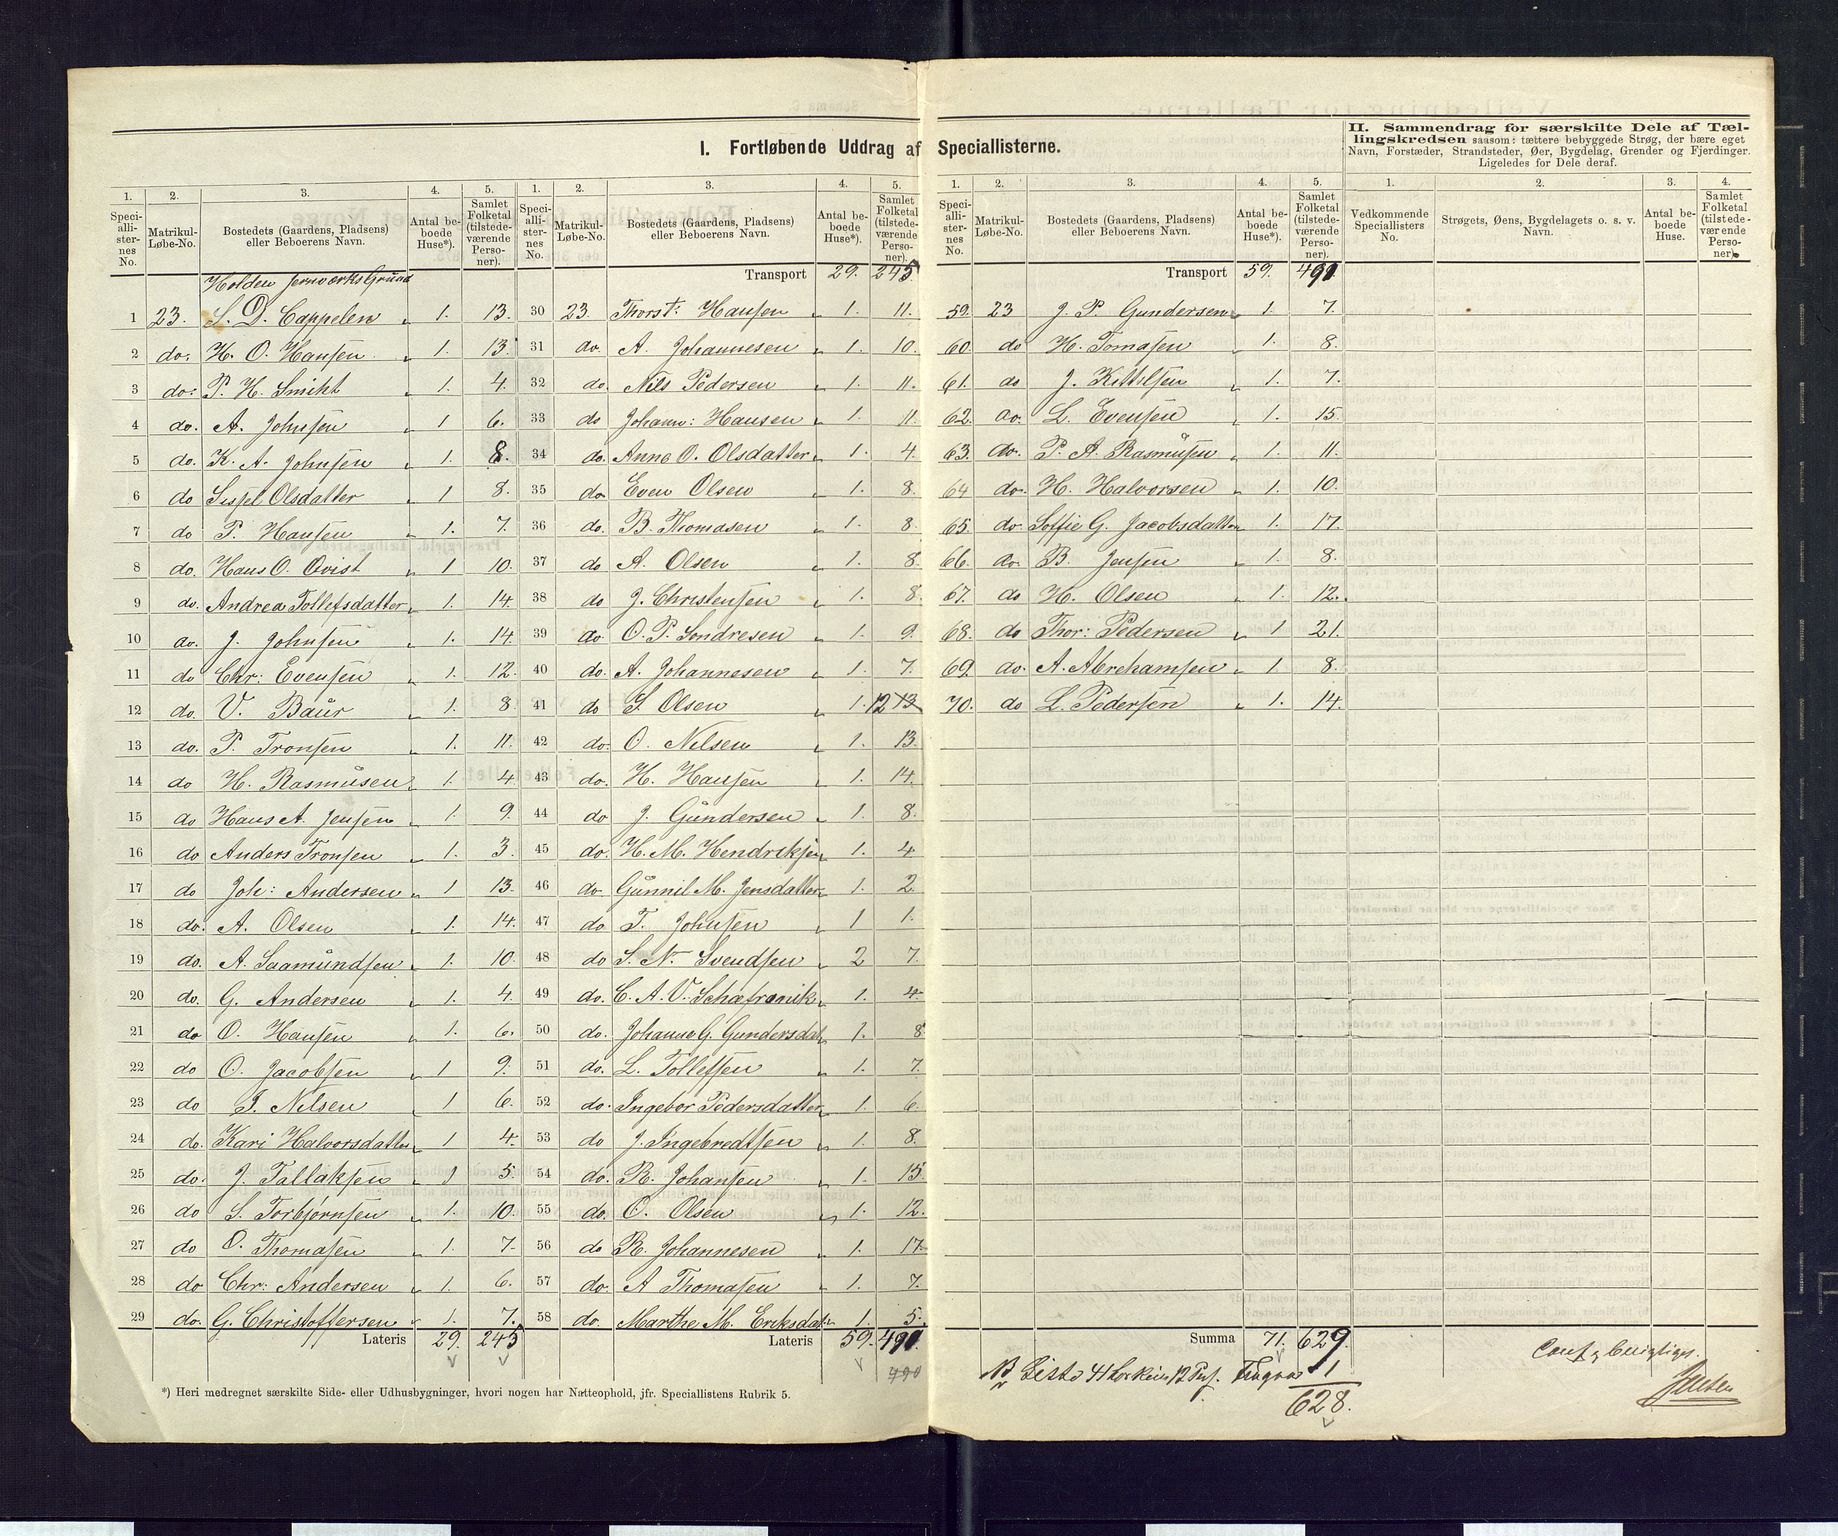 I. Fortløbende Uddrag af Speciallisterne.
II. Sammendrag for særskilte Dele af Tællingskredsen saasom: tættere bebyggede Strøg, der bære eget Navn, Forstæder, Strandsteder, Øer, Bygdelag, Grender og Fjerdinger. Ligeledes for Dele deraf.
1. 2. 3. 4. 5.
Speciallisternes No. Matrikul-Løbe-No. Bostedets (Gaardens, Pladsens) eller Beboerens Navn. Antal beboede Huse*). Samlet Folketal (tilstedeværende Personer).
Holden Jernværks Grund
1 23. S. D. Cappelen 1. 13.
2 do. H. O. Hansen 1. 13.
3 do. P. H. Smikt 1. 4.
4 do. A. Johnsen 1 6.
5 do. K. A. Johnsen 1. 8.
6 do Sispel Olsdatter 1 8.
7 do P. Hansen 1. 7.
8 do. Hans O. Qvist 1 10.
9 do. Andrea Tollefsdatter 1. 14.
10 do. J. Johnsen 1. 14.
11 do Chr: Evensen 1. 12.
12 do. V. Baur 1. 8.
13 do. P. Tronsen 1. 11.
14 do H. Rasmusen 1. 4
15 do Hans A. Jensen 1. 9.
16 do Anders Tronsen 1. 3.
17 do Joh: Andersen 1 13.
18 do. A. Olsen 1. 14.
19 do. A. Saamundsen 1. 10.
20 do. G. Andersen 1. 4.
21 do O. Hansen 1. 6.
22 do O. Jacobsen 1 9.
23 do J. Nelsen 1 6.
24 do. Kari Halvorsdatter 1 4.
25 do. J. Tallaksen 1 5.
26 do S. Torbjørnsen 1. 10.
27 do O. Thomasen 1. 7.
28 do Chr: Andersen 1. 6.
29 do. G. Christoffersen 1. 7.
Lateris 29. 245
1. 2. 3. 4. 5.
Speciallisternes No. Matrikul-Løbe-No. Bostedets (Gaardens, Pladsens) eller Beboerens Navn. Antal beboede Huse*). Samlet Folketal (tilstedeværende Personer).
Transport 29. 245
30 23. Thorst: Hansen 1. 11.
31 do. A. Johannesen 1. 10.
32 do. Nils Pedersen 1. 11.
33 do Johann: Hansen 1. 11.
34 do. Anna O. Olsdatter 1. 4.
35 do Even Olsen 1. 8.
36 do. B. Thomasen 1. 8.
37 do A. Olsen 1. 8.
38 do J. Christensen 1. 8.
39 do. O. P. Sondresen 1. 9.
40 do. A. Johannesen 1. 7.
41 do S. Olsen 1. 12 13.
42 do. O. Nelsen 1. 13.
43 do. H. Hansen 1. 14.
44 do J. Gundersen 1. 8.
45 do. H. M. Hendriksen 1. 4
46 do Gunnil M. Jensdatter 1. 2.
47 do T. Johnsen 1 1.
48 do S. N. Svendsen 2 7.
49 do. C. A. V. Schafranik 1. 4.
50 do. Johanne G. Gundersdat 1. 8
51 do. L. Tollefsen 1. 7.
52 do. Ingebor Pedersdatter 1. 6.
53 do J. Ingebredtsen 1. 8.
54 do. R. Johansen 1. 15.
55 do. O. Olsen 1. 12.
56 do R. Johannesen 1. 17.
57 do. A Thomasen 1. 7.
58 do. Marthe M. Eriksdat 1. 5.
Lateris 59. 491
490
1. 2. 3. 4. 5.
Speciallisternes No. Matrikul-Løbe-No. Bostedets (Gaardens, Pladsens) eller Beboerens Navn. Antal beboede Huse*). Samlet Folketal (tilstedeværende Personer).
Transport 59. 491
59. 23 J. P. Gundersen 1. 7.
60. do H. Tomasen 1. 8.
61. do J. Kittilsen 1. 7.
62. do. L. Evensen 1. 15.
63. do. P. A. Rasmusen 1. 11.
64 do. H. Halvorsen 1. 10.
65. do. Soffie G. Jacobsdatter 1. 17.
66. do. B. Jensen 1. 8.
67. do H. Olsen 1. 12.
68. do Thor: Pedersen 1 21.
69. do. A. Abrehamsen 1. 8.
70. do L. Pedersen 1. 14.
Summa 71. 629.
1
628.
1. 2. 3. 4.
Vedkommende Speciallisters No. Strøgets, Øens, Bygdelagets o. s. v. Navn. Antal beboede Huse. Samlet Folketal (tilstedeværende Personer).
NB Liste 41
*) Heri medregnet særskilte Side- eller Udhusbygninger, hvori nogen har Natteophold, jfr. Speciallistens Rubrik 5.